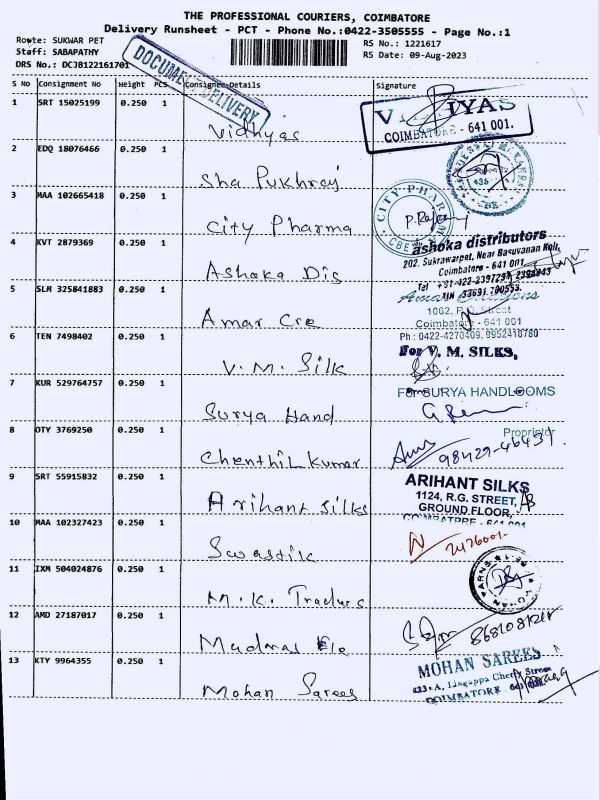 THE PROFESSIONAL COURIERS, COIMBATORE
Delivery Runsheet - PCT - Phone No.:0422-3505555 - Page No.:1
Route: SUKWAR PET
RS No.: 1221617
Staff: SABAPATHY
RS Date: 09-Aug-2023
DRS No.: DCJB122161701
DOCUMENT DELIVERY
S No Consignment No Weight PCS Consignee Details Signature
1 SRT 15025199 0.250 1 Vidhyas
COIMBATORE - 641 001.
2 EDQ 18076466 0.250 1 Sha Pukhraj
3 MAA 102665418 0.250 1 City Pharma
CITY PHARM
CBE
4 KVT 2879369 0.250 1 Ashoka Dis
ashoka distributors
202, Sukrawarpet, Near Basuvanan Koil,
Coimbatore - 641 001
5 SLM 325841883 0.250 1 Amar Cre
1062, Street
Coimbatore - 641 001
Ph : 0422-4270409, 9952418780
6 TEN 7498402 0.250 1 V. M. Silk
For V. M. SILKS,
7 KUR 529764757 0.250 1 Surya Hand
For SURYA HANDLOOMS
Proprietor
8 OTY 3769250 0.250 1 Chenthil kumar
98429-46439.
9 SRT 55915832 0.250 1 Arihant Silks
ARIHANT SILKS
1124, R.G. STREET,
GROUND FLOOR,
10 MAA 102327423 0.250 1 Swastik
11 IXM 504024876 0.250 1 M. K. Traders
12 AMD 27187017 0.250 1 Madras Ele
13 KTY 9964355 0.250 1 Mohan Sarees
MOHAN SAREES
COIMBATORE